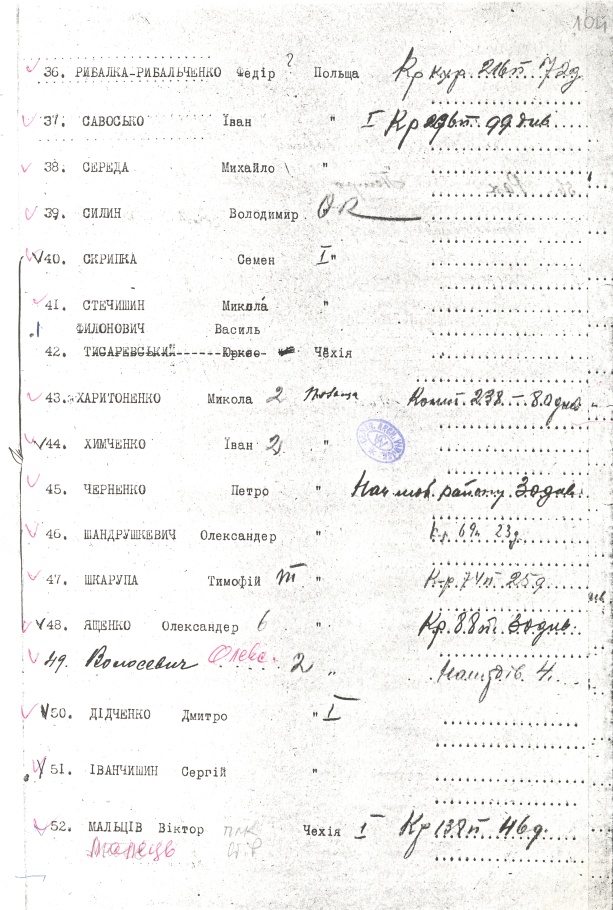 104
36. РИБАЛКА-РИБАЛЬЧЕНКО Федір ? Польща Кр кур. 216п. 72д
37. САВОСЬКО Іван " I Кр 236п. 99 див
38. СЕРЕДА Михайло "
39. СИЛИН Володимир
40. СКРИПКА Семен I "
41. СТЕЧИШИН Микола "
ФИЛОНОВИЧ Василь
42. ТИСАРЕВСЬКИЙ Юрко Чехія
43. ХАРИТОНЕНКО Микола 2 Польща 238. – 80 див
44. ХИМЧЕНКО Іван 2 "
45. ЧЕРНЕНКО Петро " Нач моб. району 30 див.
46. ШАНДРУШКЕВИЧ Олександер " К-р 69п 23д
47. ШКАРУПА Тимофій III " К-р. 74п 25д
див.
48. ЯЩЕНКО Олександер 6 " Кр. 88п. 30 див.
49. Волосевич Олекс. 2 "
50. ДІДЧЕНКО Дмитро " I
51. ІВАНЧИШИН Сергій "
52. МАЛЬЦІВ Віктор Чехія I Кр 138п 46д.
Малець